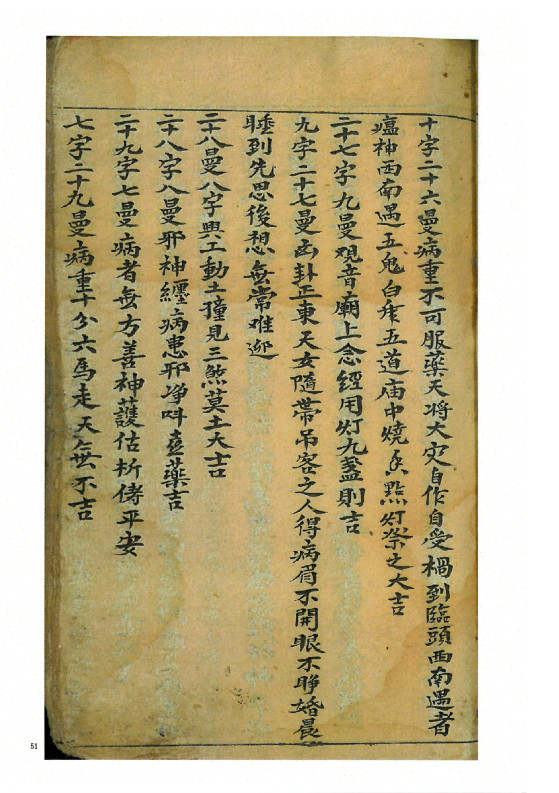 十字二十六曼病重不可服藥天将大灾自作自受禍到臨頭西南遇者
瘟神西南遇五鬼白虎五道庙中燒香點灯祭之大吉
二十七字九曼观音廟上念經用灯九盞則吉
九字二十七曼凶卦正東天女隨帶吊客之人得病眉不開眼不睁婚晨
睡到先思後想無常难迯
二十八曼八字興工動土撞見三煞莫土大吉
二十八字八曼邪神纏病患邪净呌吃藥吉
二十九字七曼病者無方善神護佑祈侍平安
七字二十九曼病重十分六馬走天無不吉
51